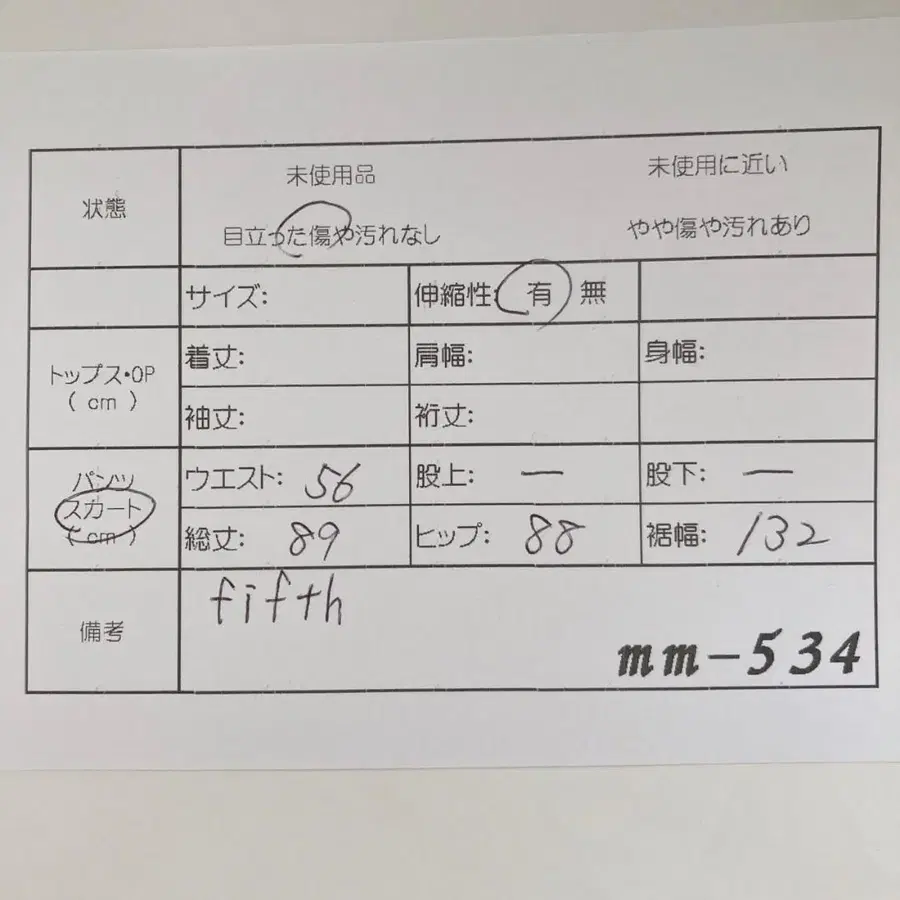 状態
未使用品 未使用に近い
目立った傷や汚れなし やや傷や汚れあり
サイズ: 伸縮性: 有 無
トップス・OP
( cm )
着丈: 肩幅: 身幅:
袖丈: 裄丈:
パンツ
スカート
( cm )
ウエスト: 56 股上: ― 股下: ―
総丈: 89 ヒップ: 88 裾幅: 132
備考
fifth
mm-534